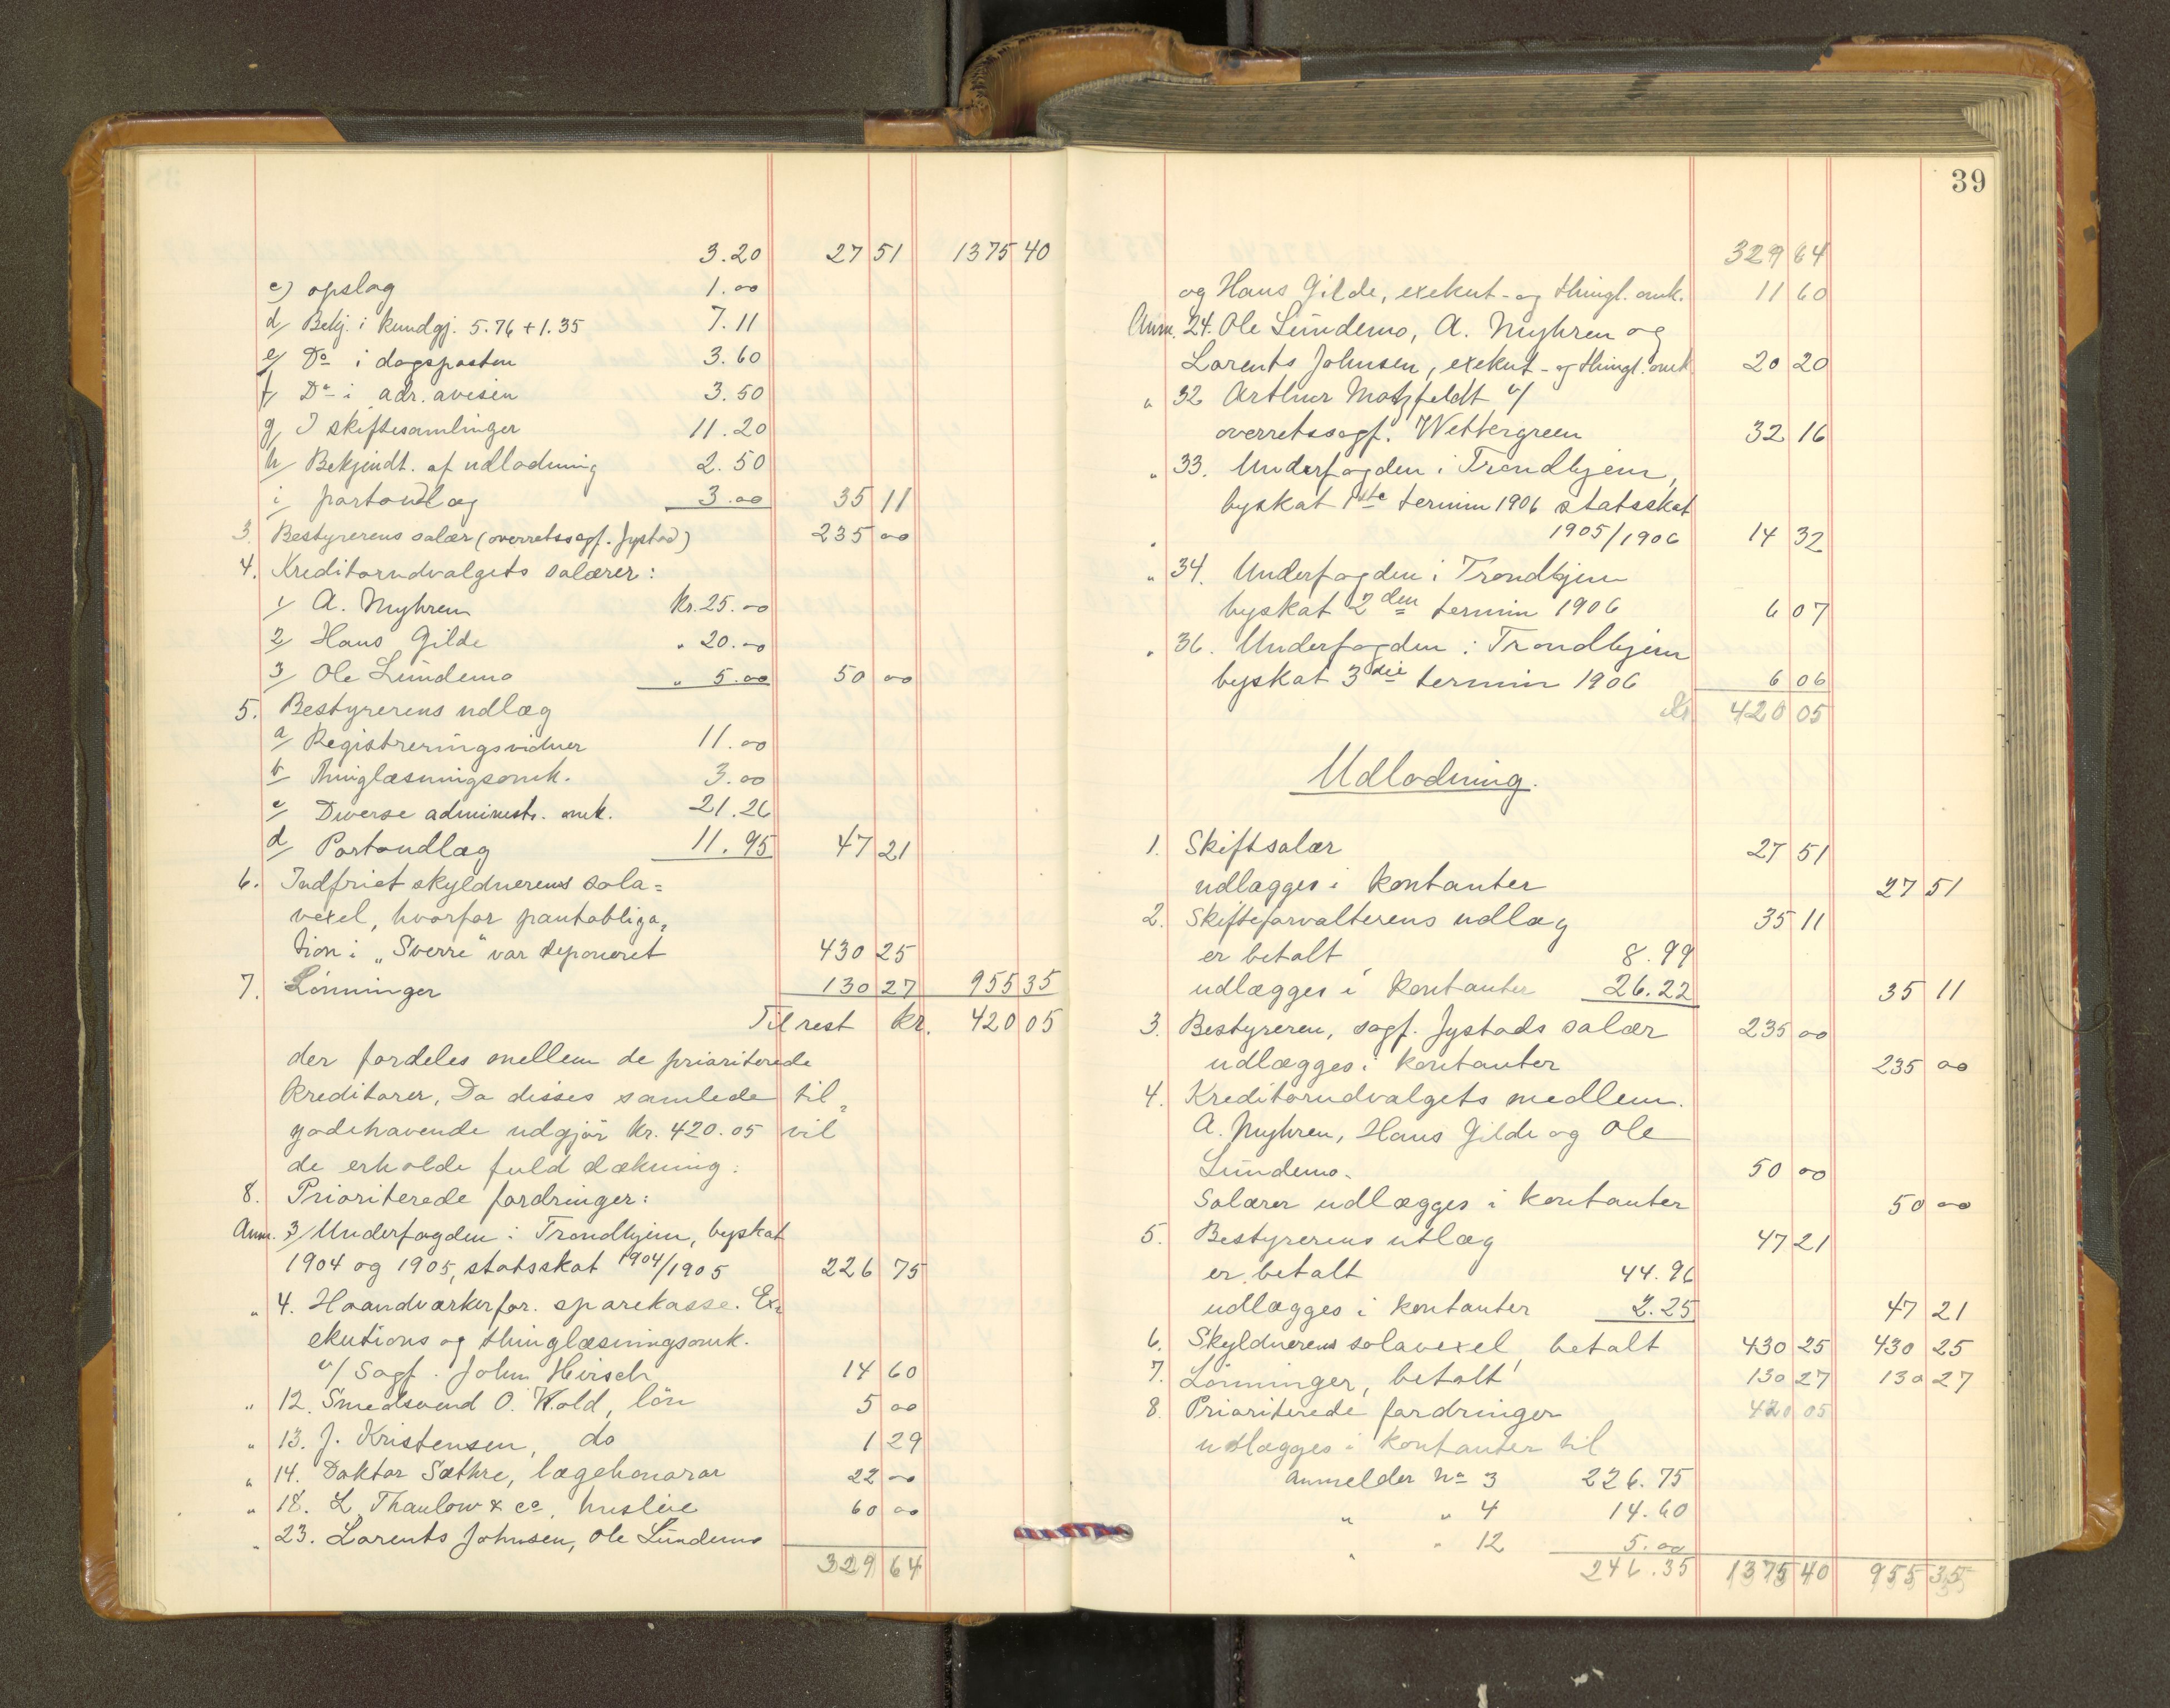 3.20 27 51 1375 40
c) opslag 1.00
d/ Bekj. i kundgj. 5.76 + 1.35 7.11
e/ Do i dagsposten 3.60
f/ Do i adr. avisen 3.50
g/ 7 skiftesamlinger 11.20
h/ Bekjendt. af udlodning 2.50
i portoudlæg 3.00 35 11
3. Bestyrerens salær (overretssagf. Jystad) 235 00
4. Kreditorudvalgets salærer:
1/ A. Myhren Kr. 25.00
2/ Hans Gilde " 20.00
3/ Ole Lundemo " 5.00 50 00
5. Bestyrerens udlæg
a/ Registreringsvidner 11.00
b/ Thinglæsningsomk. 3.00
c/ Diverse administr. omk. 21.26
d/ Portoudlæg 11.95 47 21
6. Indfriet skyldnerens sola=
vexel, hvorfor pantobliga=
tion i „Sverre" var deponeret 430 25
7. Lönninger 130 27 955 35
Til rest kr. 420 05
der fordeles mellem de prioriterede
kreditorer, Da disses samlede til=
godehavende udgjör kr. 420.05 vil
de erholde fuld dækning:
8. Prioriterede fordringer:
Anm. 3/ Underfogden i Trondhjem, byskat
1904 og 1905, statsskat 1904/1905 226 75
" 4. Haandværkerfor. sparekasse. Ex=
ekutions og thinglæsningsomk.
v/ Sagf. John Hirsch 14 60
" 12. Smedsvend O. Wold, lön 5 00
" 13. J. Kristensen, do 1 29
" 14. Doktor Sæthre, lægehonorar 22 00
" 18. L Thaulow & co, husleie 60 00
" 23. Lorents Johnsen, Ole Lundemo
329 64
39
329 64
og Hans Gilde, exekut- og thingl. omk. 11 60
Anm. 24. Ole Lundemo, A. Myhren og
Lorents Johnsen, exekut- og thingl. omk 20 20
" 32 Arthur Motzfeldt v/
overretssagf. Wettergreen 32 16
" 33. Underfogden i Trondhjem,
byskat 1ste termin 1906 statsskat
1905/1906 14 32
" 34. Underfogden i Trondhjem
byskat 2den termin 1906 6 07
" 36. Underfogden i Trondhjem
byskat 3die termin 1906 6 06
Kr. 420 05
Udlodning.
1. Skiftsalær 27 51
udlægges i kontanter 27 51
2. Skifteforvalterens udlæg 35 11
er betalt 8.99
udlægges i kontanter 26.22 35 11
3. Bestyreren, sagf. Jystads salær 235 00
udlægges i kontanter 235 00
4. Kreditorudvalgets medlem.
A. Myhren, Hans Gilde og Ole
Lundemo. 50 00
Salærer udlægges i kontanter 50 00
5. Bestyrerens utlæg 47 21
er betalt 44.96
udlægges i kontanter 2.25 47 21
6. Skyldnerens solavexel betalt 430 25 430 25
7. Lönninger, betalt 130 27 130 27
8. Prioriterede fordringer 420 05
udlægges i kontanter til
Anmelder No 3 226.75
" " 4 14.60
" " 12 5.00
246.35 1375 40 955 35